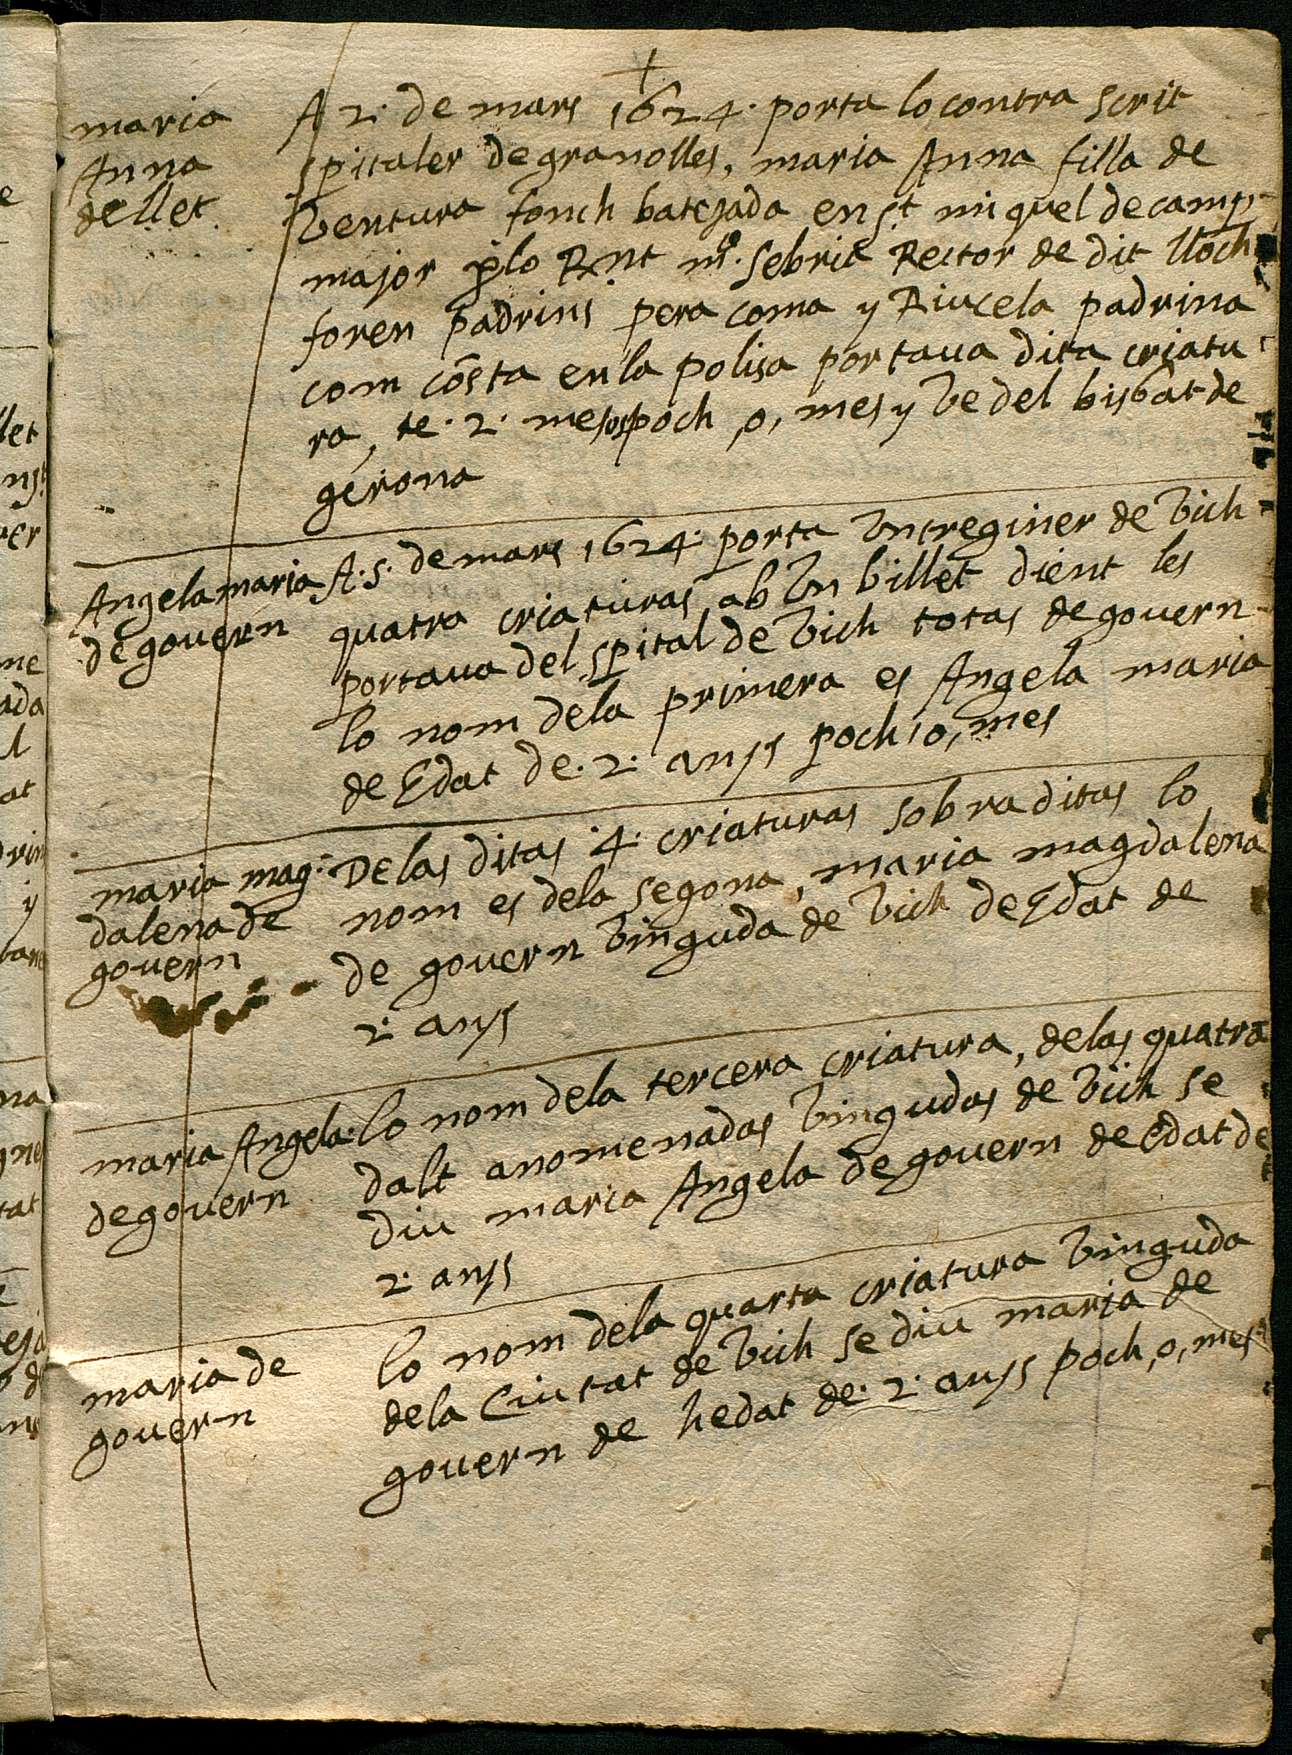 maria
Anna
de llet
A 2. de mars 1624. porta lo contra scrit
spitaler de granolles, maria Anna filla de
ventura fonch batejada en st. miquel de camp
major plo Rnt mo. sebria Rector de dit lloch
foren padrins pera coma y Riucela padrina
com cōsta en la polisa portaua dita criatu
ra, te. 2. mesos poch, o, mes y ve del bisbat de
gerona
Angela maria
de govern
A. 5. de mars 1624. porta vn treginer de vich
quatra criaturas, ab vn billet dient les
portaua del spital de vich totas de govern
lo nom dela primera es Angela maria
de Edat de. 2. anys poch, o, mes
maria mag.
dalena de
govern
Delas ditas 4. criaturas sobraditas lo
nom es dela segona, maria magdalena
de govern vinguda de vich de Edat de
2. anys
maria Angela.
de govern
lo nom dela tercera criatura, delas quatra
dalt anomenadas vingudas de vich se
diu maria Angela de govern de Edat de
2. anys
maria de
govern
lo nom dela quarta criatura vinguda
dela Ciutat de vich se diu maria de
govern de hedat de. 2. anys poch, o, mes